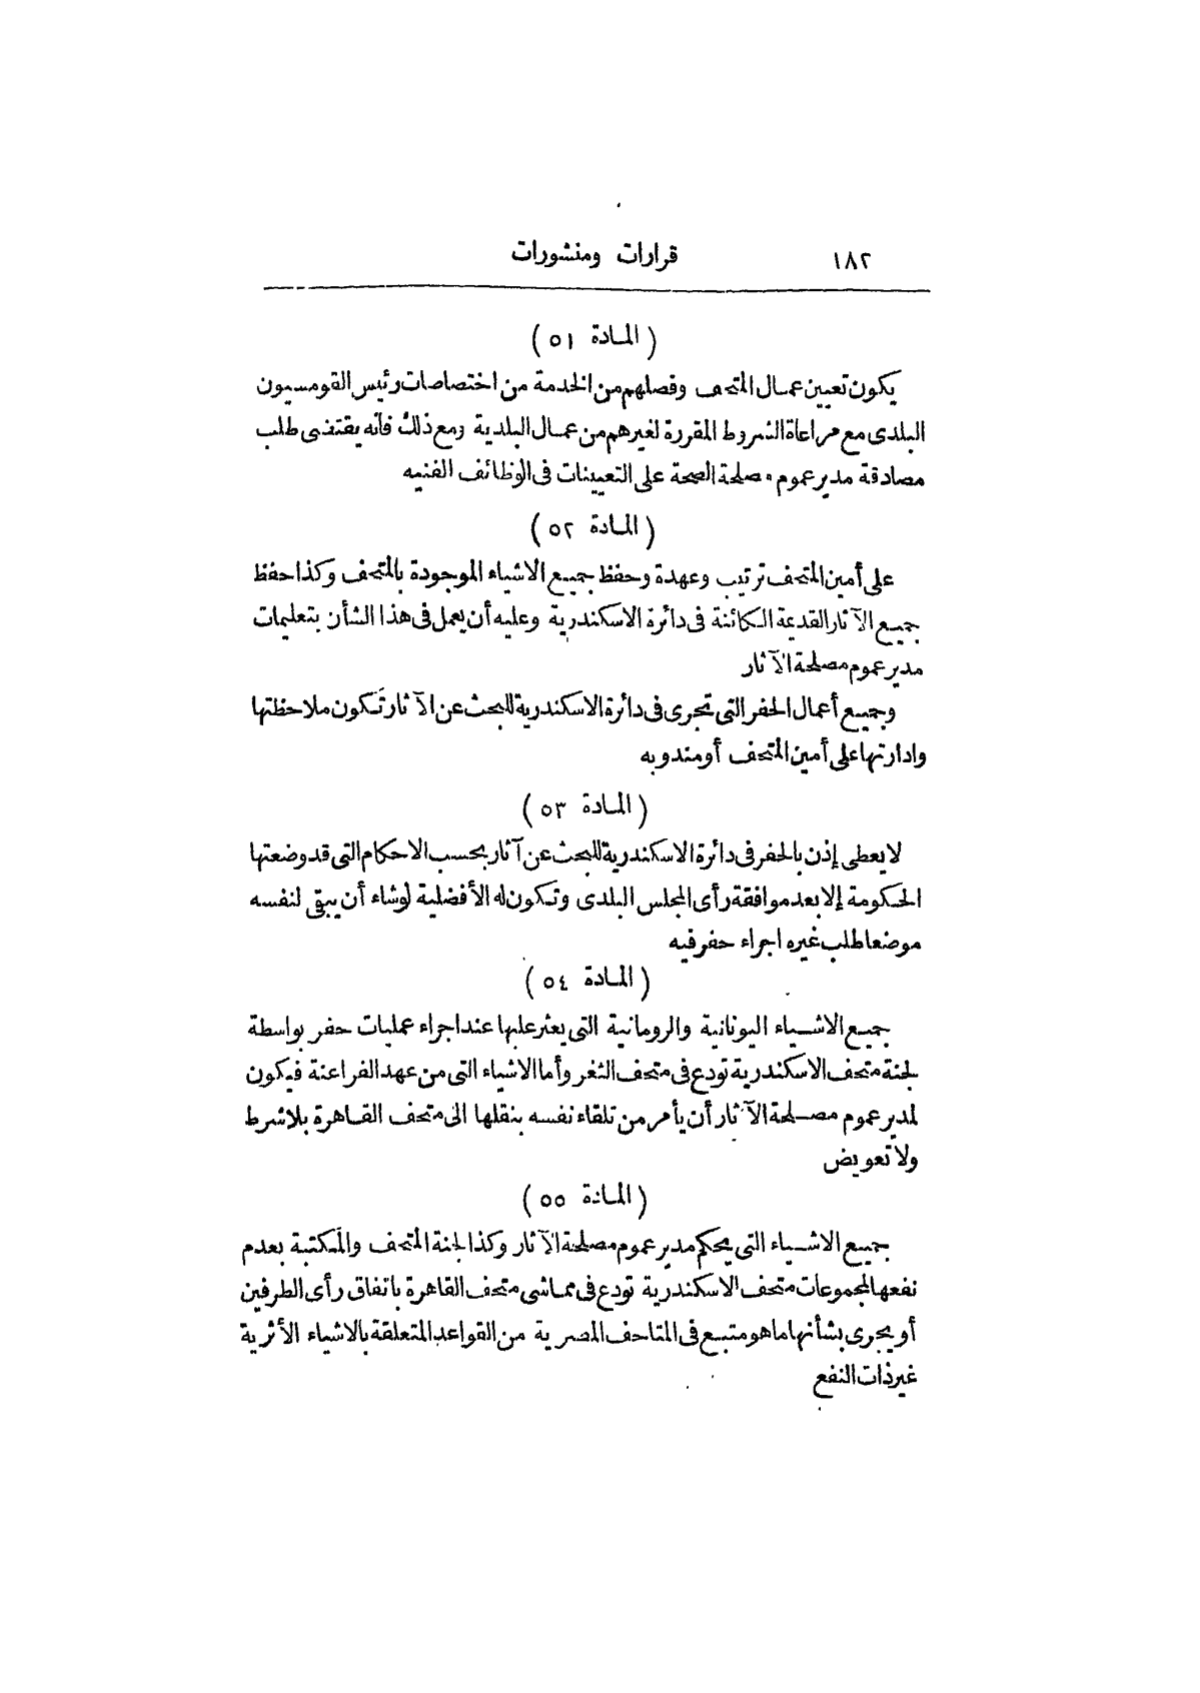 ١٨٢ قرارات ومنشورات
( المادة ٥١ )
يكون تعيين عمال المتحف وفصلهم من الخدمة من اختصاصات رئيس القومسيون
البلدى مع مراعاة الشروط المقررة لغيرهم من عمال البلدية ومع ذلك فانه يقتضى طلب
مصادقة مدير عموم مصلحة الصحة على التعيينات فى الوظائف الفنيه
( المادة ٥٢ )
على أمين المتحف ترتيب وعهدة وحفظ جميع الاشياء الموجودة بالمتحف وكذا حفظ
جميع الآثار القديمة الكائنة فى دائرة الاسكندرية وعليه أن يعمل فى هذا الشأن بتعليمات
مدير عموم مصلحة الآثار
وجميع أعمال الحفر التى تجرى فى دائرة الاسكندرية للبحث عن الآثار تكون ملاحظتها
وادارتها على أمين المتحف أو مندوبه
( المادة ٥٣ )
لا يعطى إذن بالحفر فى دائرة الاسكندرية للبحث عن آثار بحسب الاحكام التى قد وضعتها
الحكومة إلا بعد موافقة رأى المجلس البلدى وتكون له الأفضلية لو شاء أن يبقى لنفسه
موضعا طلب غيره اجراء حفر فيه
( المادة ٥٤ )
جميع الاشياء اليونانية والرومانية التى يعثر عليها عند اجراء عمليات حفر بواسطة
لجنة متحف الاسكندرية تودع فى متحف الثغر وأما الاشياء التى من عهد الفراعنة فيكون
لمدير عموم مصلحة الآثار أن يأمر من تلقاء نفسه بنقلها الى متحف القاهرة بلا شرط
ولا تعويض
( المادة ٥٥ )
جميع الاشياء التى يحكم مدير عموم مصلحة الآثار وكذا لجنة المتحف والمكتبة بعدم
نفعها لمجموعات متحف الاسكندرية تودع فى مماشى متحف القاهرة باتفاق رأى الطرفين
أو يجرى بشأنها ما هو متبع فى المتاحف المصرية من القواعد المتعلقة بالاشياء الأثرية
غير ذات النفع